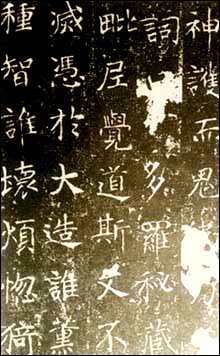 神而鬼
詞多羅秘藏
毗尼覺道斯文不
滅憑於大造誰薰
種智誰壞煩惚猗